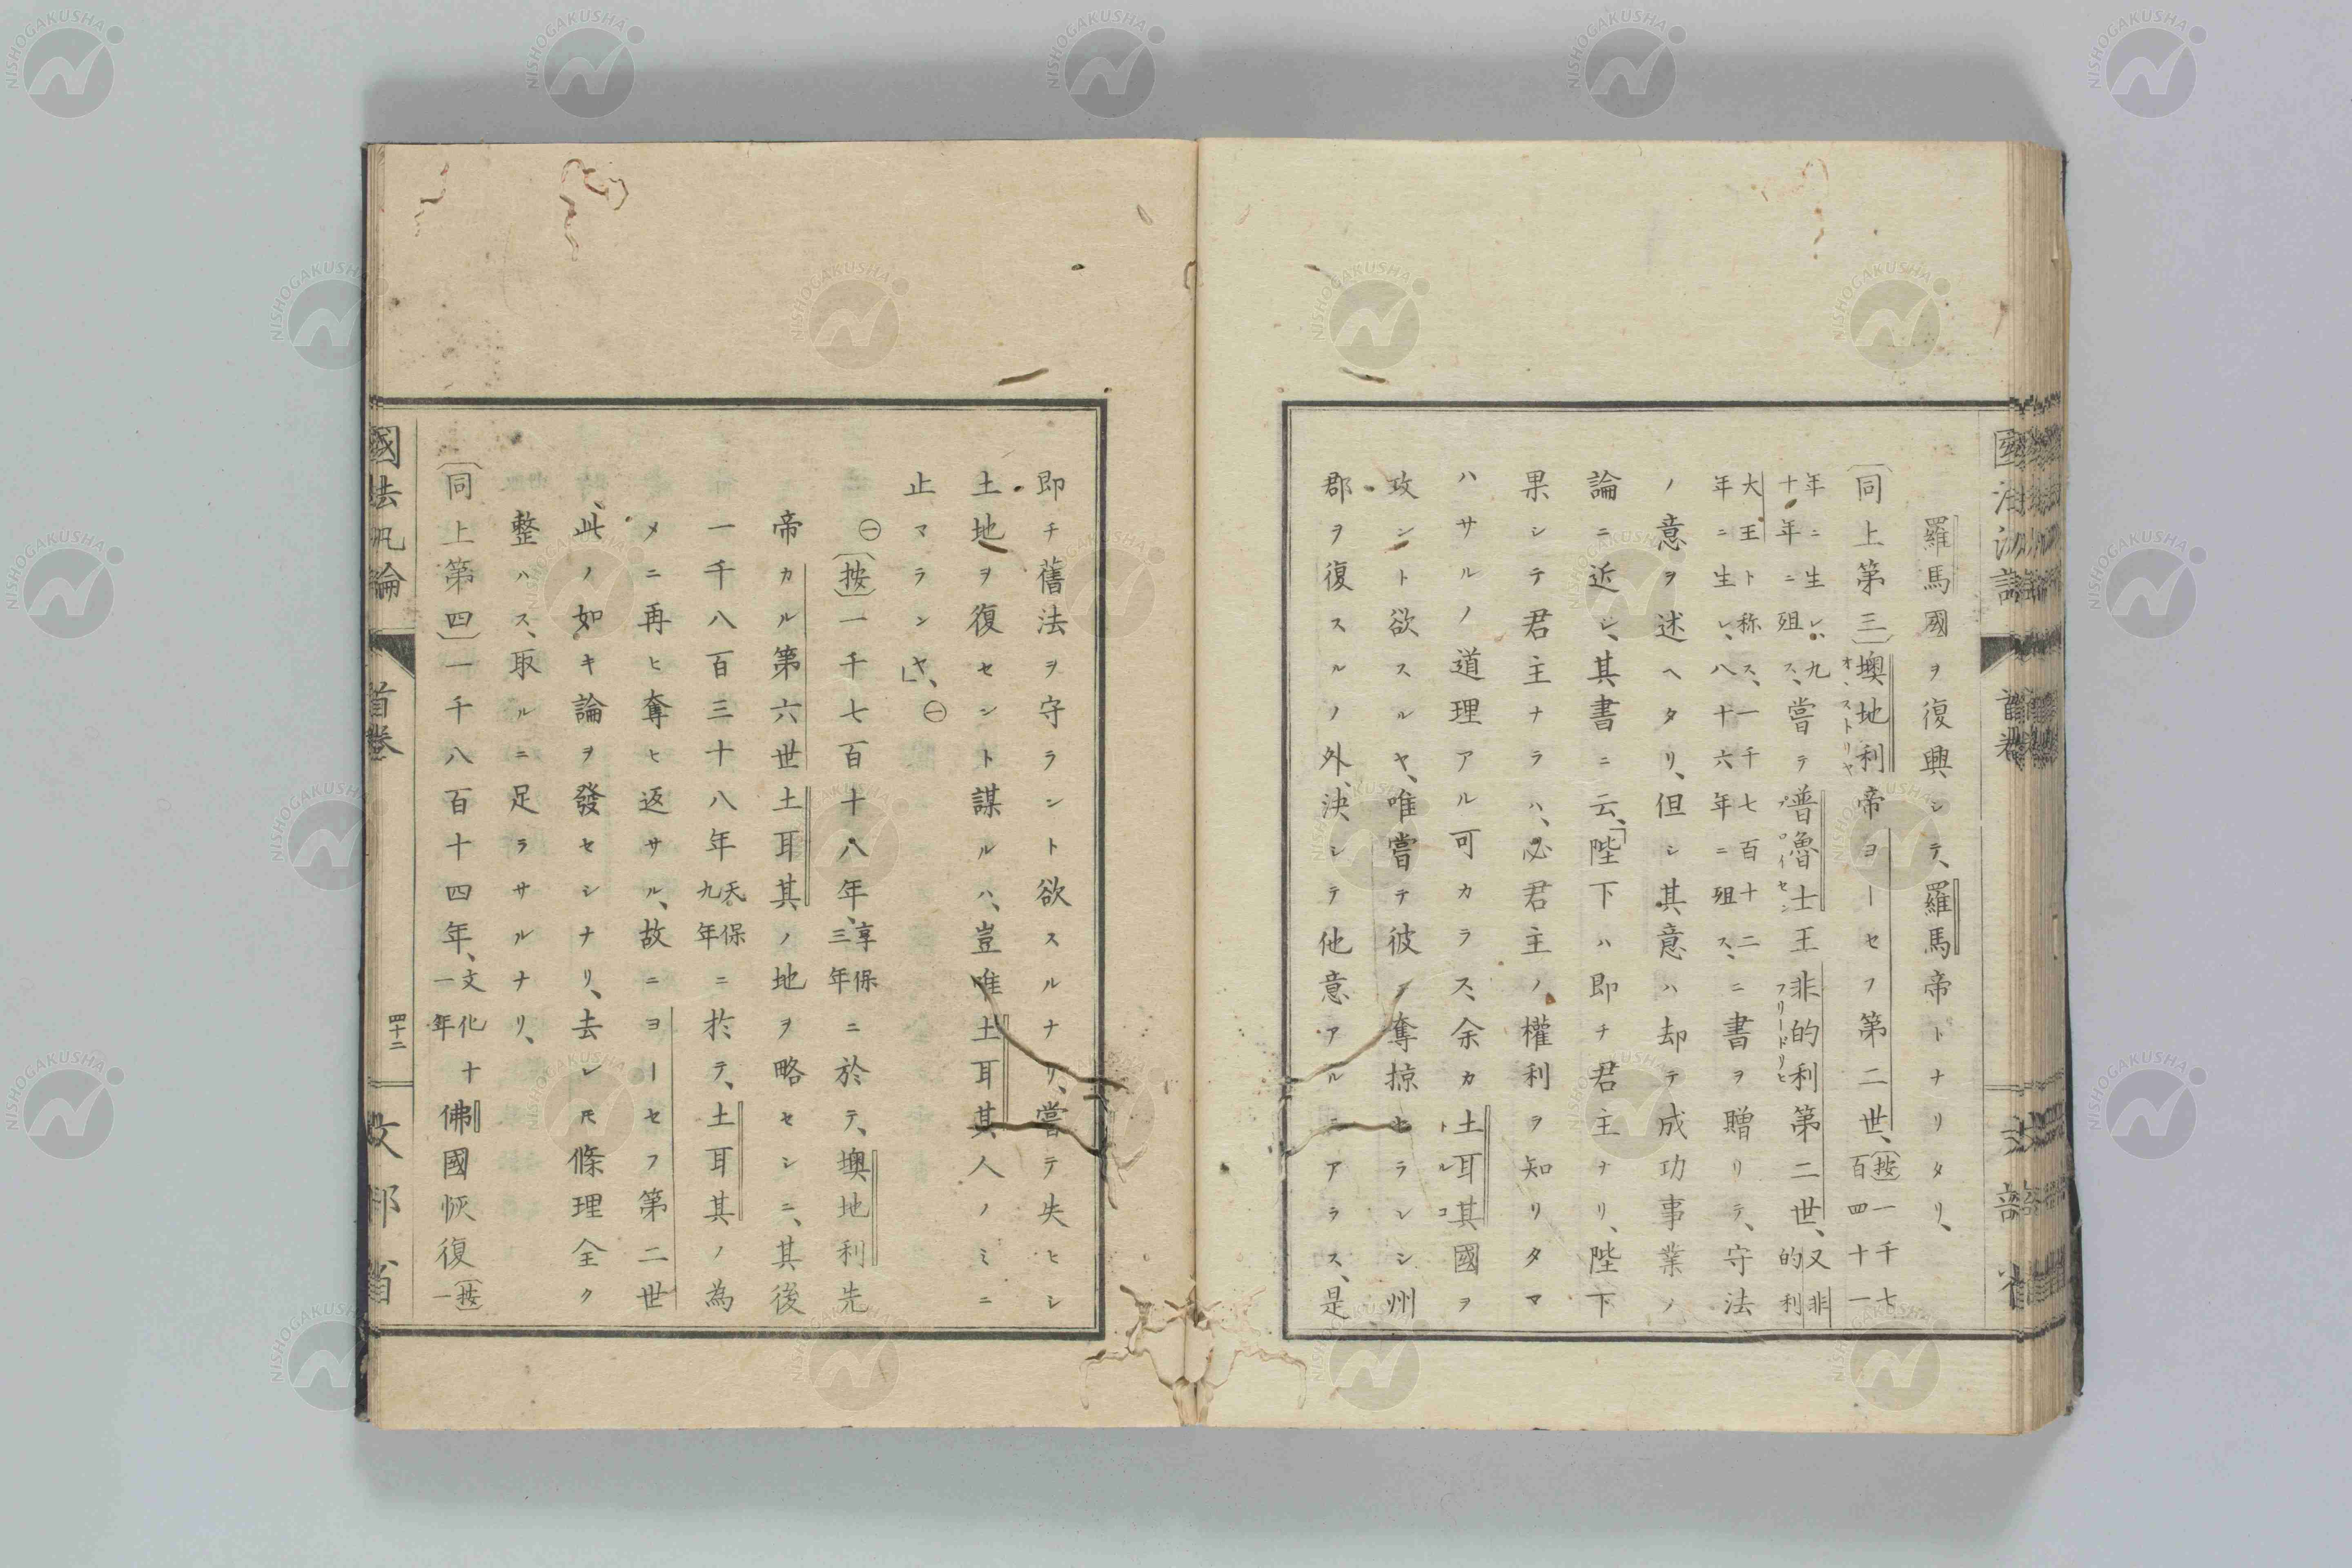 羅馬國ヲ復興シテ、羅馬帝トナリタリ、
〔同上第三〕墺地利帝ヨーセフ第二世、〔按〕一千七百四十一
オヽストリヤ
年ニ生レ、九十年ニ殂ス、嘗テ普魯士王非的利第二世、又非的利
プロイセン
フリードリヒ
大王ト称ス、一千七百十二年ニ生レ、八十六年ニ殂ス、ニ書ヲ贈リテ、守法
ノ意ヲ述ヘタリ、但シ其意ハ却テ成功事業ノ
論ニ近シ、其書ニ云、「陛下ハ即チ君主ナリ、陛下
果シテ君主ナラハ、必君主ノ權利ヲ知リタマ
ハサルノ道理アル可カラス、余カ土耳其國ヲ
トルコ
攻ント欲スルヤ、唯嘗テ彼ニ奪掠セラレシ州
郡ヲ復スルノ外、決シテ他意アルニアラス、是
國法汎論
首卷
文部省
即チ舊法ヲ守ラント欲スルナリ、嘗テ失ヒシ
土地ヲ復セント謀ルハ、豈唯土耳其人ノミニ
止マランヤ、」㊀
㊀〔按〕一千七百十八年、享保三年ニ於テ、墺地利先
帝カル第六世土耳其ノ地ヲ略セシニ、其後
一千八百三十八年天保九年ニ於テ、土耳其ノ為
メニ再ヒ奪ヒ返サル、故ニヨーセフ第二世
此ノ如キ論ヲ發セシナリ、去レ𪜈條理全ク
整ハス、取ルニ足ラサルナリ、
〔同上第四〕一千八百十四年、文化十一年佛國恢復〔按〕一
國法汎論
首卷
四十二
文部省
NISHOGAKUSHA